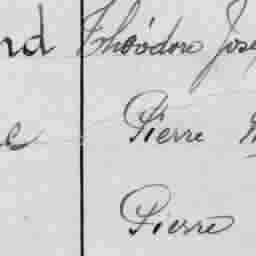 nd Théodore Jose
e Pierre
Pierre